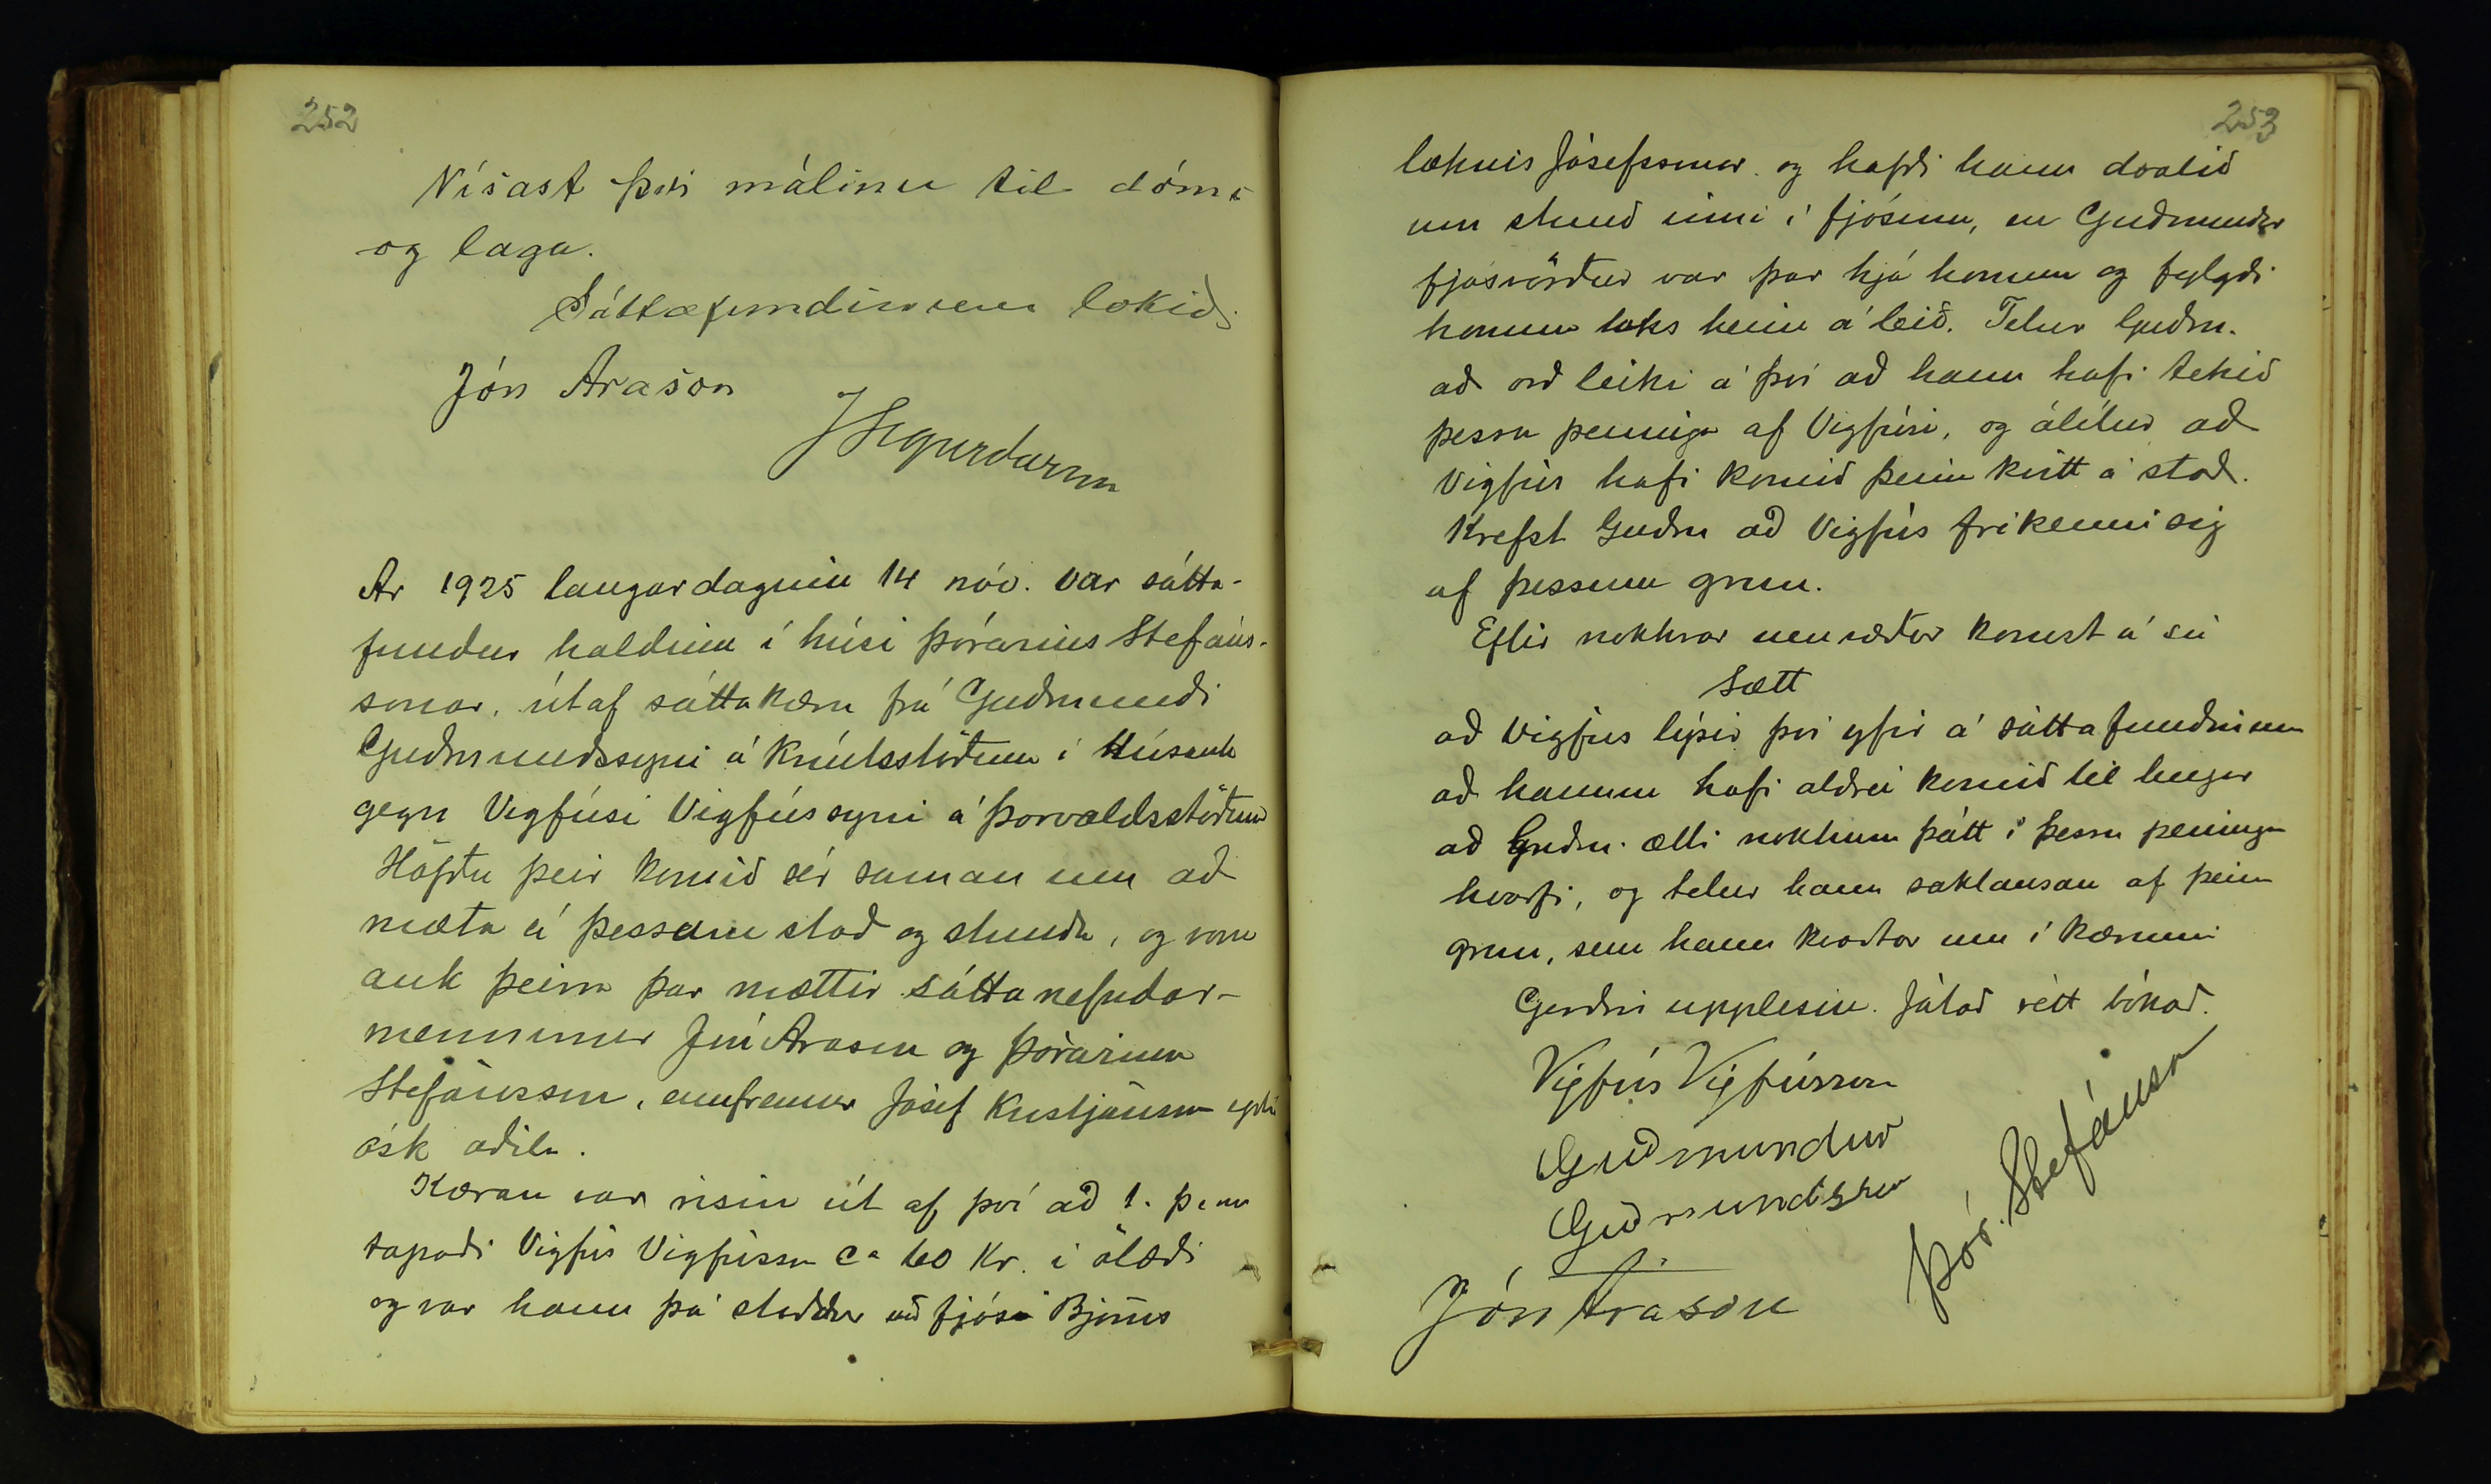 252
Vísast því málinu til dóms
og laga.
Sáttafundinum lokið.
Jón Arason
JSigurdurson
Ar 1925 laugardaginn 14 nóv. var sátta-
fundur haldinn í húsi Þórarins Stefáns-
sonar, útaf sáttakæru frá Guðmundi
Guðmundssyni á Knútsstöðum í Húsavík
gegn Vigfúsi Vigfússyni á Þorvaldsstöðum
Höfðu þeir komið sér saman um að
mæta á þessum stað og stundu, og voru
auk þeirra þar mættir sáttanefndar-
mennirnir Jón Arason og Þórarinn
Stefánsson, ennfremur Jósef Kristjánsson eptir
ósk aðila.
Kæran var risin út af því að 1. þ.m
tapaði Vigfús Vigfússon ca 60 Kr. í ölæði
og var hann þá staddur við fjós Björns
253
læknis Jósefssonar og hafði hann dvalið
um stund inni í fjósinu, en Guðmundur
fjósvörður var þar hjá honum og fylgdi
honum loks heim á leið. Telur Guðm.
að orð leiki á því að hann hafi tekið
þessa peninga af Vigfúsi, og álítur að
Vigfús hafi komið þeim kvitt á stað.
Krefst Guðm að Vigfús fríkenni sig
af þessum grun.
Eftir nokkrar umræður komst á sú
Sætt
að Vigfús lýsir því yfir á sáttafundinum
að honum hafi aldrei komið til hugar
að Guðm. ætti nokkurn þátt í þessu peninga
hvarfi, og telur hann saklausan af þeim
grun, sem hann kvartar um í kærunni
Gerðin upplesin. Játað rétt bókað.
Vigfús Vigfússon
Guðmundur
Guðmundsson
Þór. Stefánsson
Jón Arason